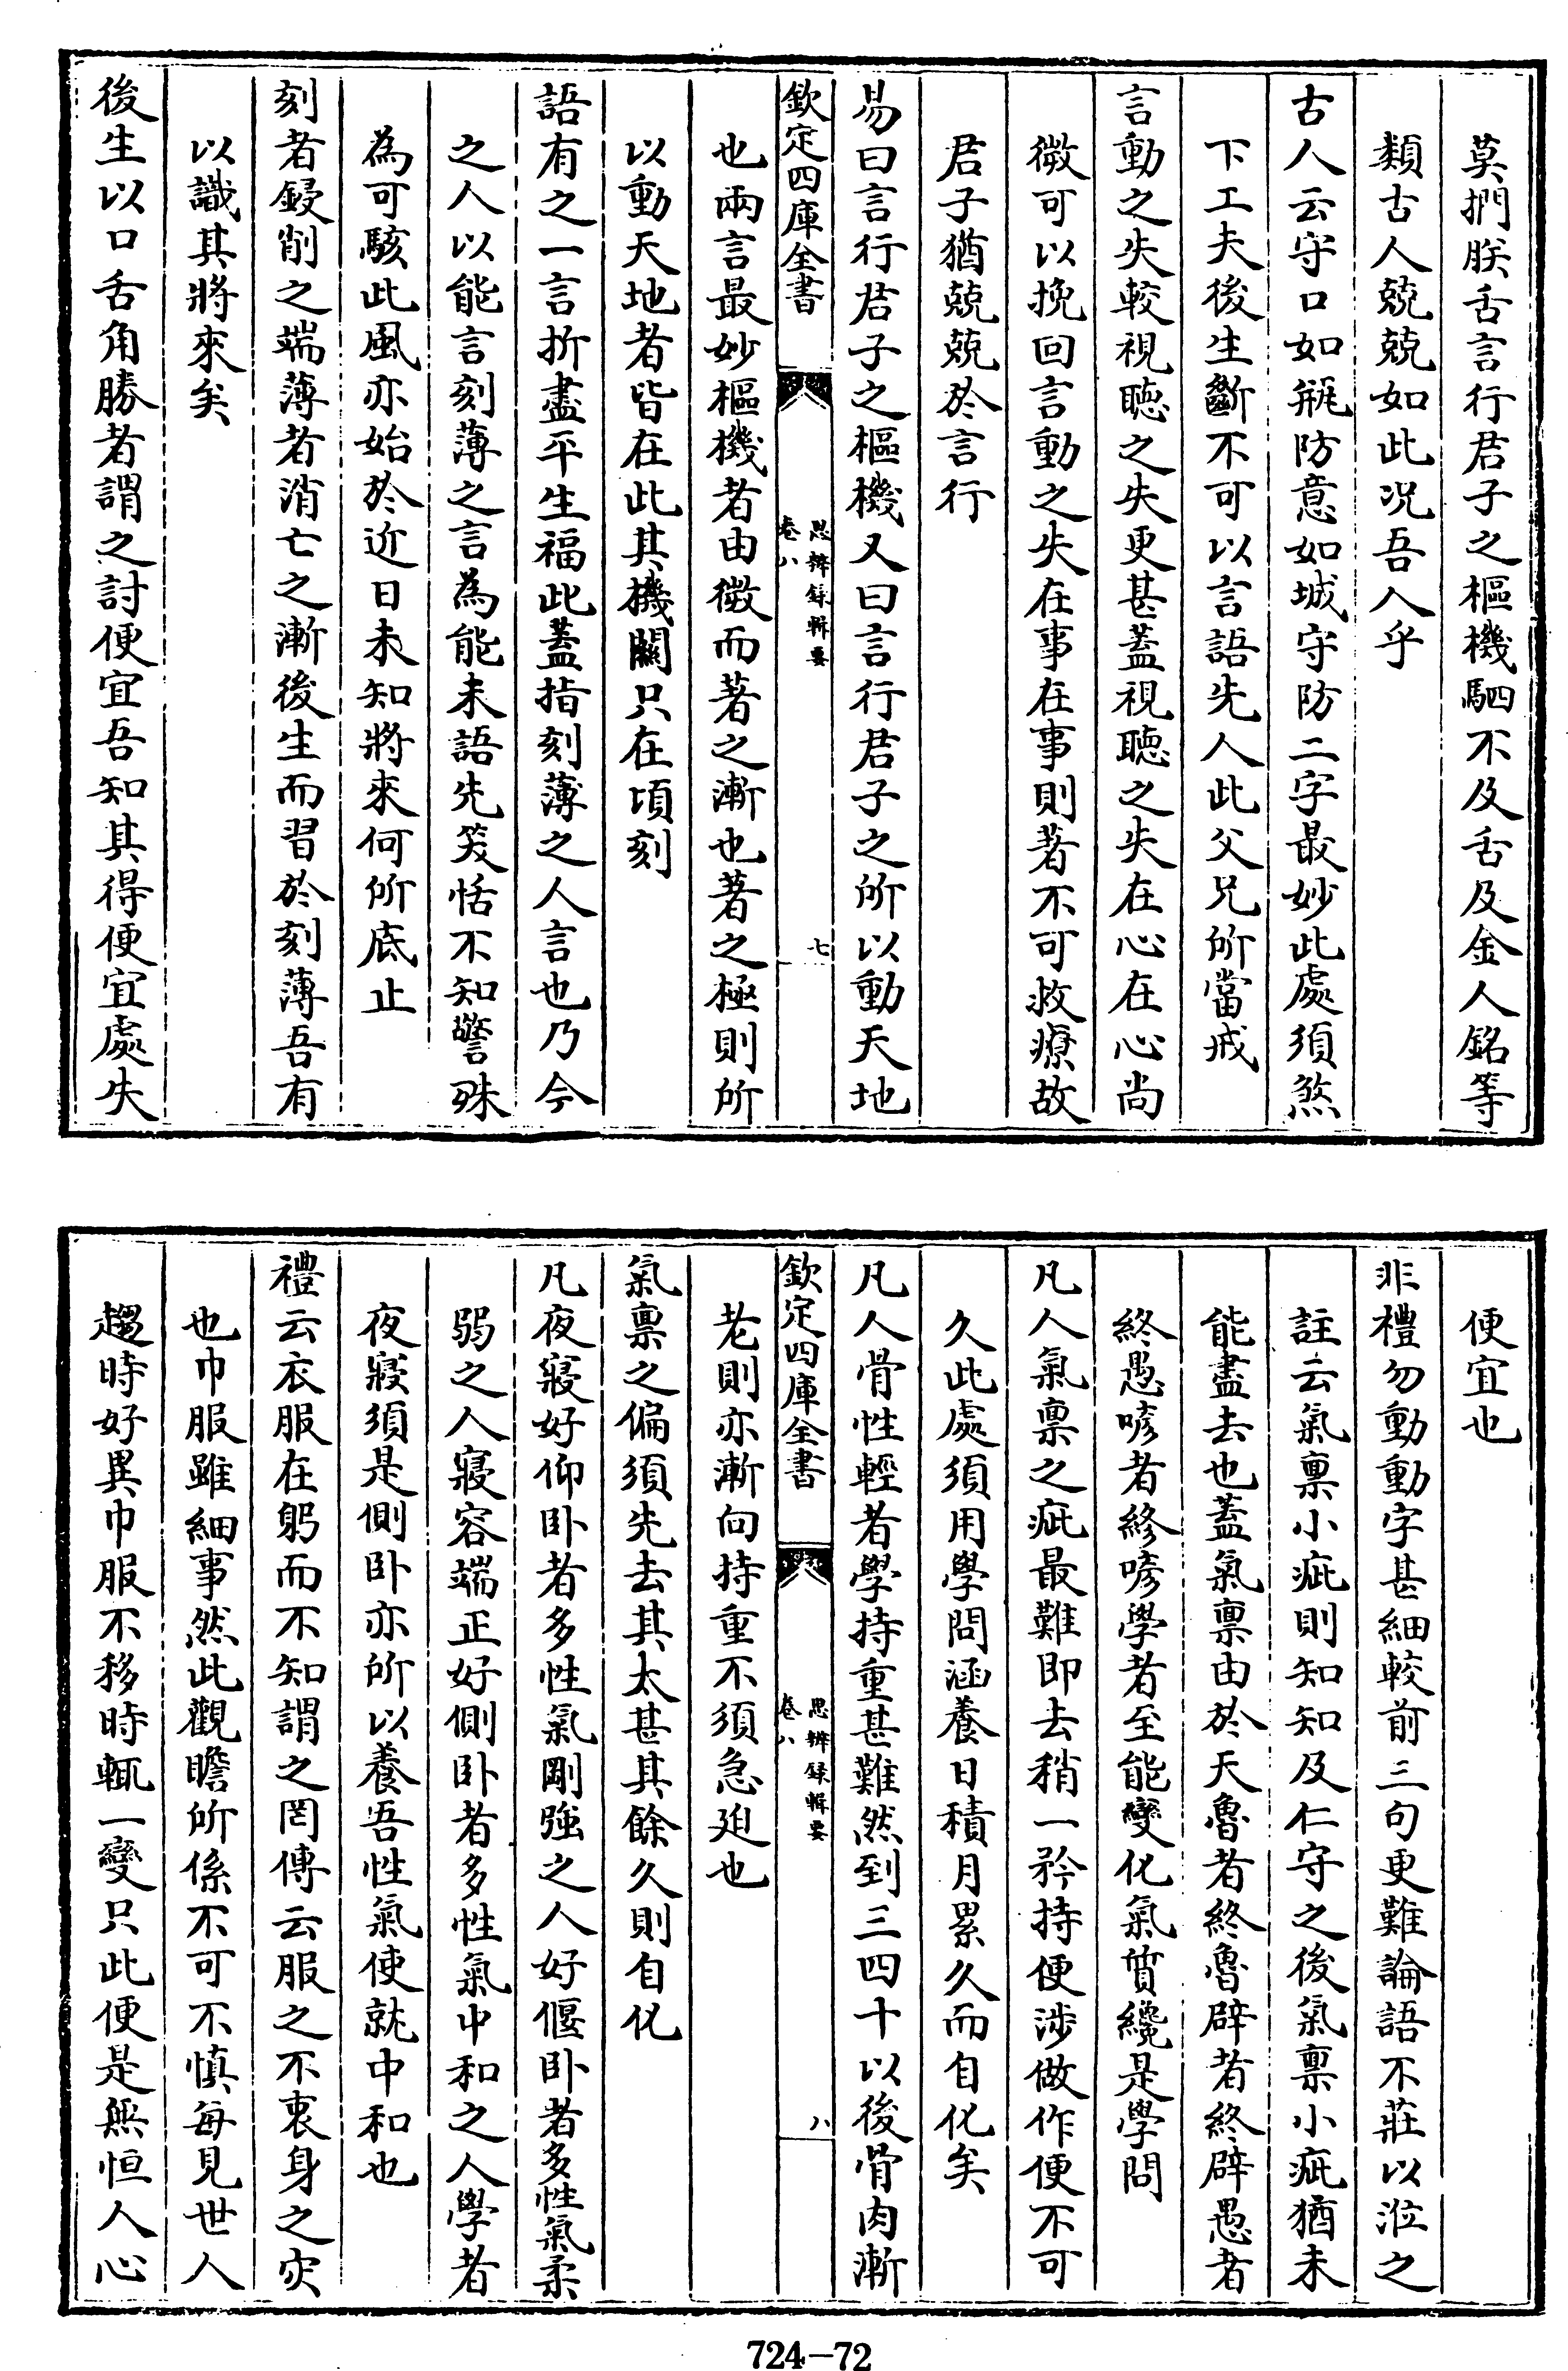 莫捫朕舌言行君子之樞機駟不及舌及金人銘等
類古人兢兢如此况吾人乎
古人云守口如瓶防意如城守防二字最妙此處須煞
下工夫後生斷不可以言語先人此父兄所當戒
言動之失較視聽之失更甚蓋視聽之失在心在心尚
微可以挽回言動之失在事在事則著不可救療故
君子猶兢兢於言行
易曰言行君子之樞機又曰言行君子之所以動天地
欽定四庫全書
思辨録輯要
卷八
七
也兩言最妙樞機者由微而著之漸也著之極則所
以動天地者皆在此其機關只在頃刻
語有之一言折盡平生福此蓋指刻薄之人言也乃今
之人以能言刻薄之言為能未語先笑恬不知警殊
為可駭此風亦始於近日未知將來何所底止
刻者鋟削之端薄者消亡之漸後生而習於刻薄吾有
以識其將來矣
後生以口舌角勝者謂之討便宜吾知其得便宜處失
便宜也
非禮勿動動字甚細較前三句更難論語不莊以涖之
註云氣禀小疵則知知及仁守之後氣禀小疵猶未
能盡去也蓋氣禀由於天魯者終魯辟者終辟愚者
終愚喭者終喭學者至能變化氣質纔是學問
凡人氣禀之疵最難即去稍一矜持便涉做作便不可
久此處須用學問涵養日積月累久而自化矣
凡人骨性輕者學持重甚難然到三四十以後骨肉漸
欽定四庫全書
思辨録輯要
卷八
八
老則亦漸向持重不須急廹也
氣禀之偏須先去其太甚其餘久則自化
凡夜寢好仰卧者多性氣剛強之人好偃卧者多性氣柔
弱之人寢容端正好側卧者多性氣中和之人學者
夜寢須是側卧亦所以養吾性氣使就中和也
禮云衣服在躬而不知謂之罔傳云服之不衷身之灾
也巾服雖細事然此觀瞻所係不可不慎每見世人
趨時好異巾服不移時輒一變只此便是無恒人心
724-72